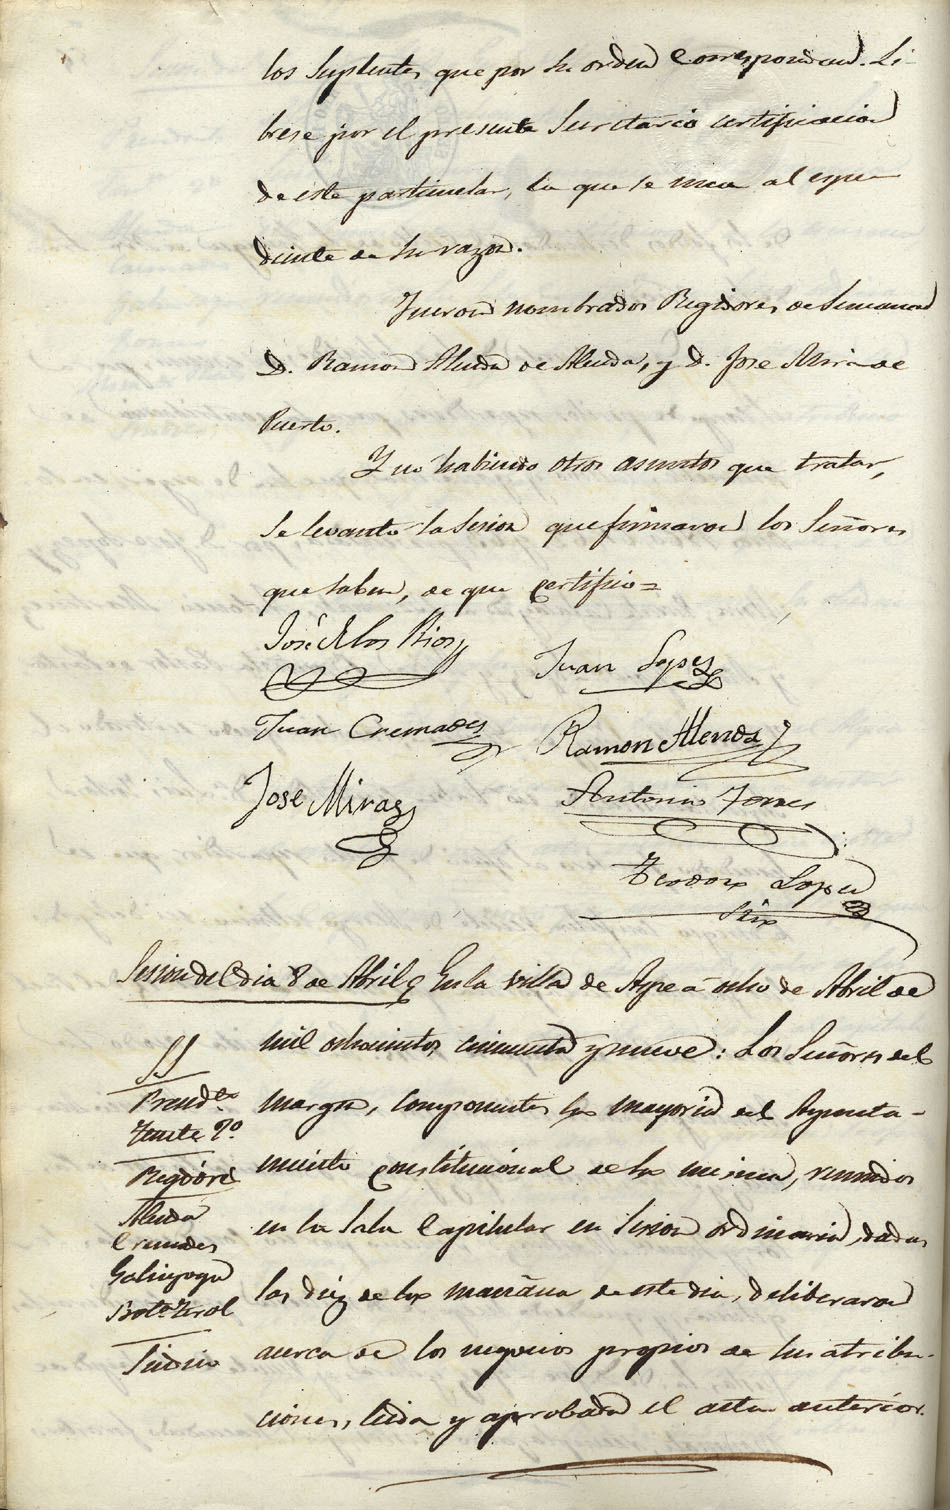 los Suplentes que por su orden correspondan. Li-
brese por el presente Secretario certificacion
de este particular, la que se una al espe-
diente de su razon.
Fueron nombrados Regidores de Semana
D. Ramon Alenda de Alenda, y D. Jose Mira de
Puerto.
Y no habiendo otros asuntos que tratar,
se levantó la Sesion que firmaron los Señores
que saben, de que certifico=
José de los Rios
Juan Lopez
Juan Cremades
Ramon Alenda
Jose Miras
Antonio Torres
Teodoro Lopez
Srio
Sesion del dia 8 de Abril
En la villa de Aspe a ocho de Abril de
mil ochocientos cincuenta y nueve: Los Señores del
margen, componentes la mayoria del Ayunta-
miento constitucional de la misma, reunidos
en la Sala Capitular en Sesion ordinaria, dadas
las diez de la mañana de este dia, deliberaron
acerca de los negocios propios de sus atribu-
ciones, leida y aprobada el acta anterior.
SS
Presid.te
Tente 2º
Regidores
Alenda
Cremades
Galinsoga
Bot.a Terol
Sindico